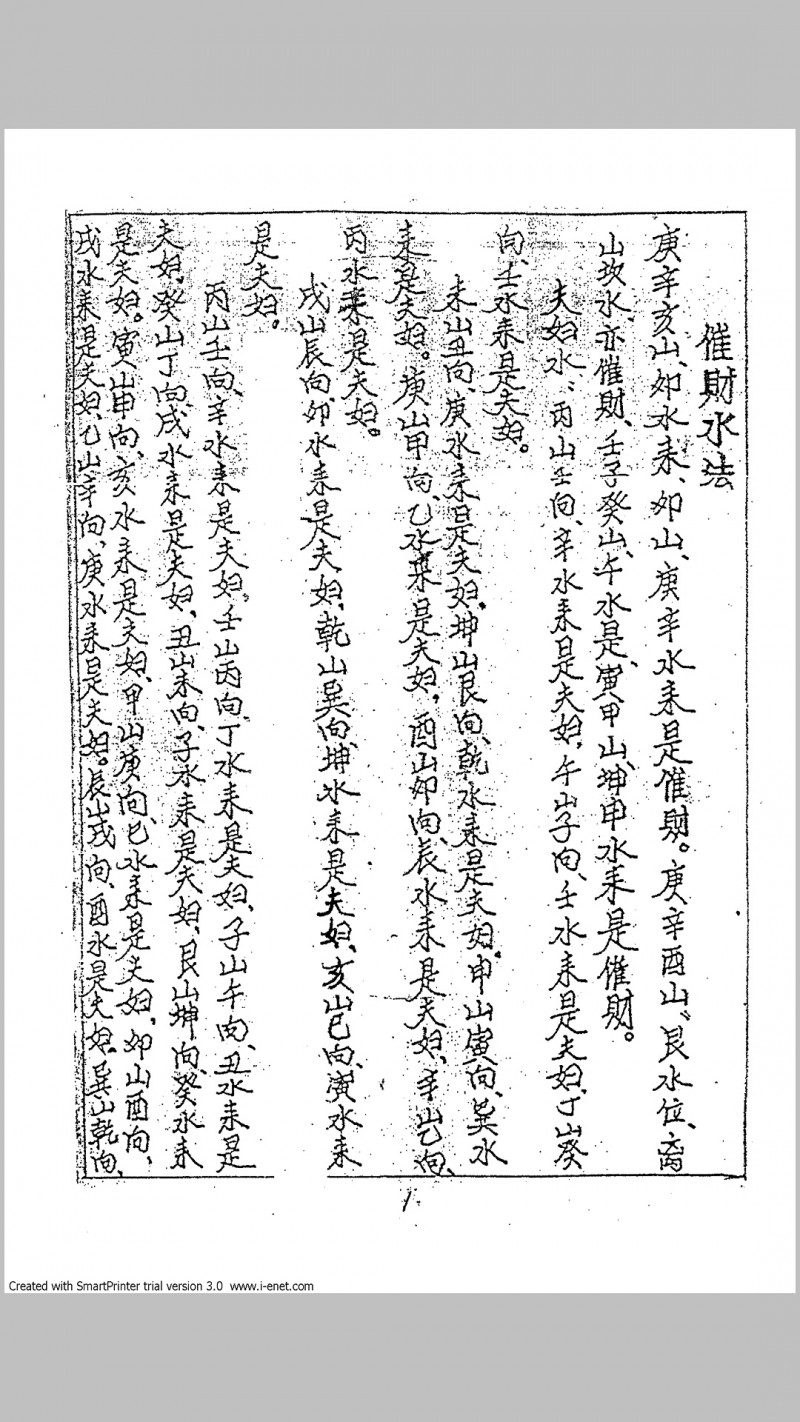 催財水法
庚辛亥山、卯水来、卯山、庚辛水来是催財。庚辛酉山、艮水位、离
山坎水、亦催財、壬子癸山、午水是、寅甲山、坤申水来是催財。
夫妇水、丙山壬向、辛水来是夫妇、午山子向、壬水来是夫妇、丁山癸
向、壬水来是夫妇。
未山丑向、庚水来是夫妇、坤山艮向、乾水来是夫妇。申山寅向、巽水
来是夫妇。庚山甲向、乙水来是夫妇、酉山卯向、辰水来是夫妇、辛山乙向、
丙水来是夫妇。
戌山辰向、卯水来是夫妇、乾山巽向、坤水来是夫妇、亥山巳向、寅水来
是夫妇。
丙山壬向、辛水来是夫妇。壬山丙向、丁水来是夫妇、子山午向、丑水来是
夫妇、癸山丁向、戌水来是夫妇、丑山未向、子水来是夫妇、艮山坤向、癸水来
是夫妇。寅山申向、亥水来是夫妇、甲山庚向、巳水来是夫妇、卯山酉向、
戌水来是夫妇、乙山辛向、庚水来是夫妇。辰山戌向、酉水是夫妇、巽山乾向、
1
Created with SmartPrinter trial version 3.0 www.i-enet.com